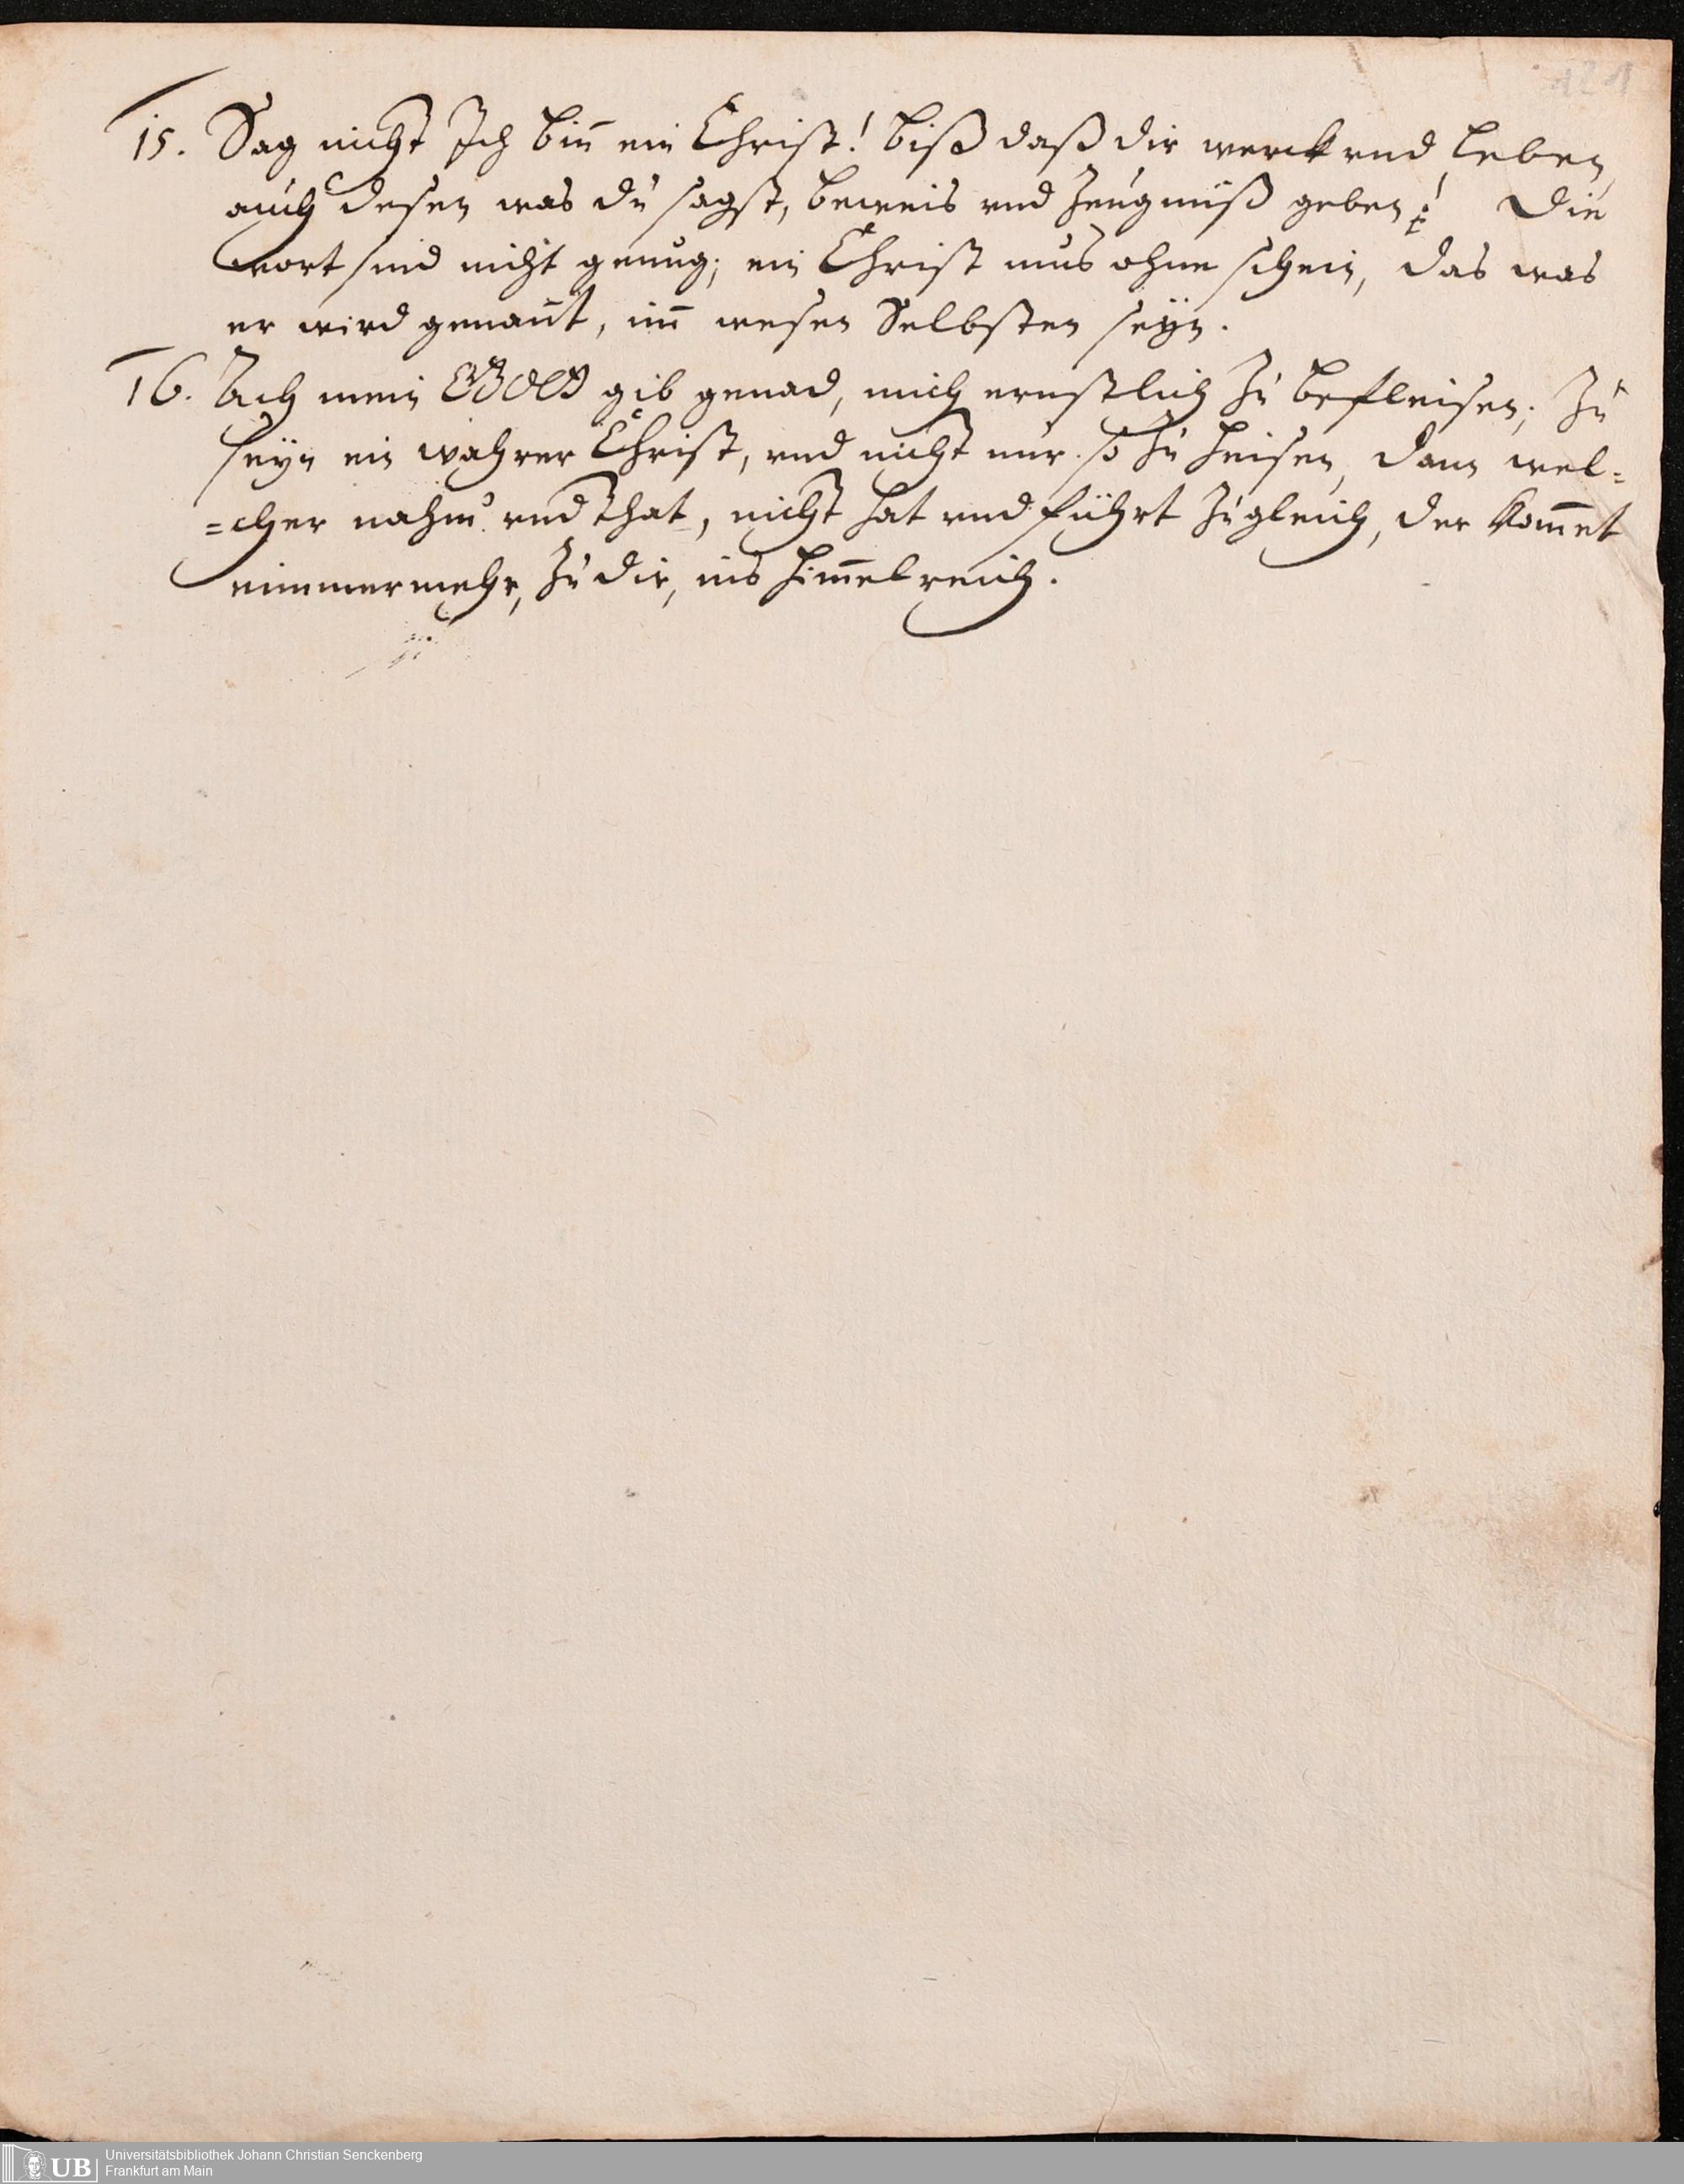 121
15. Sag nicht Ich bin̄ ein Christ! biß daß dir werck vnd leben
auch desen was du sagst, beweis vnd zeugnuß geben! Die
wort sind nicht genug; ein Christ mus ohne schein, das was
er wird genan̄t, im̄ wesen Selbsten seyn.
16. Ach mein GOTT gib genad, mich ernstlich zu befleisen; zu
seyn ein wahrer Christ, vnd nicht nur so zu heisen, dann wel=
=cher nahm vnd that, nicht hat vnd führt zugleich, der kom̄et
nimmermehr, zu dir, ins him̄elreich.
UB
Universitätsbibliothek Johann Christian Senckenberg
Frankfurt am Main